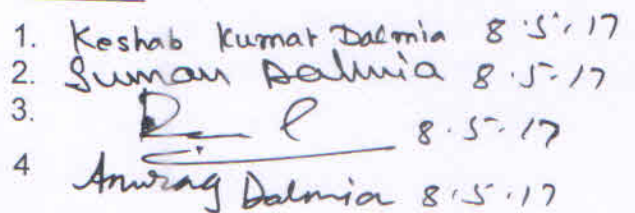 1. Keshab Kumar Dalmia 8.5.17
2. Suman Dalmia 8.5.17
3. 8.5.17
4 Anurag Dalmia 8.5.17